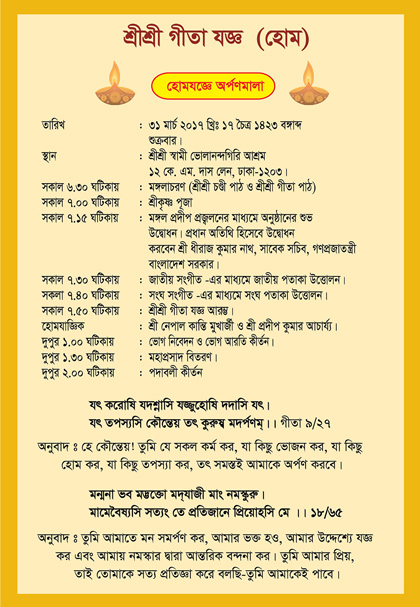 শ্রীশ্রী গীতা যজ্ঞ (হোম)
হোমযজ্ঞে অর্পণমালা
তারিখ : ৩১ মার্চ ২০১৭ খ্রিঃ ১৭ চৈত্র ১৪২৩ বঙ্গাব্দ
শুক্রবার।
স্থান : শ্রীশ্রী স্বামী ভোলানন্দগিরি আশ্রম
১২ কে. এম. দাস লেন, ঢাকা-১২০৩।
সকাল ৬.৩০ ঘটিকায় : মঙ্গলাচরণ (শ্রীশ্রী চণ্ডী পাঠ ও শ্রীশ্রী গীতা পাঠ)
সকাল ৭.০০ ঘটিকায় : শ্রীকৃষ্ণ পূজা
সকাল ৭.১৫ ঘটিকায় : মঙ্গল প্রদীপ প্রজ্বলনের মাধ্যমে অনুষ্ঠানের শুভ
উদ্বোধন। প্রধান অতিথি হিসেবে উদ্বোধন
করবেন শ্রী ধীরাজ কুমার নাথ, সাবেক সচিব, গণপ্রজাতন্ত্রী
বাংলাদেশ সরকার।
সকাল ৭.৩০ ঘটিকায় : জাতীয় সংগীত -এর মাধ্যমে জাতীয় পতাকা উত্তোলন।
সকলা ৭.৪০ ঘটিকায় : সংঘ সংগীত -এর মাধ্যমে সংঘ পতাকা উত্তোলন।
সকাল ৭.৫০ ঘটিকায় : শ্রীশ্রী গীতা যজ্ঞ আরম্ভ।
হোমযাজ্ঞিক : শ্রী নেপাল কান্তি মুখার্জী ও শ্রী প্রদীপ কুমার আচার্য্য।
দুপুর ১.০০ ঘটিকায় : ভোগ নিবেদন ও ভোগ আরতি কীর্তন।
দুপুর ১.৩০ ঘটিকায় : মহাপ্রসাদ বিতরণ।
দুপুর ২.০০ ঘটিকায় : পদাবলী কীর্তন
যৎ করোষি যদশ্নাসি যজ্জুহোষি দদাসি যৎ।
যৎ তপস্যসি কৌন্তেয় তৎ কুরুষ্ব মদর্পণম্।। গীতা ৯/২৭
অনুবাদ ঃ হে কৌন্তেয়! তুমি যে সকল কর্ম কর, যা কিছু ভোজন কর, যা কিছু
হোম কর, যা কিছু তপস্যা কর, তৎ সমস্তই আমাকে অর্পণ করবে।
মন্মনা ভব মদ্ভক্তো মদ্‌যাজী মাং নমস্কুরু।
মামেবৈষ্যসি সত্যং তে প্রতিজানে প্রিয়োহসি মে ।। ১৮/৬৫
অনুবাদ ঃ তুমি আমাতে মন সমর্পণ কর, আমার ভক্ত হও, আমার উদ্দেশ্যে যজ্ঞ
কর এবং আমায় নমস্কার দ্বারা আন্তরিক বন্দনা কর। তুমি আমার প্রিয়,
তাই তোমাকে সত্য প্রতিজ্ঞা করে বলছি-তুমি আমাকেই পাবে।